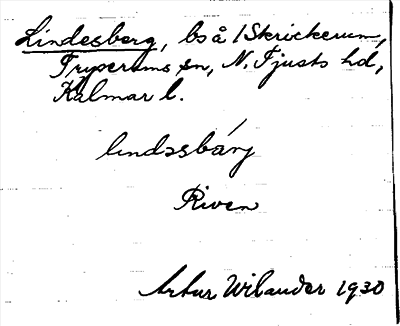 Lindesberg, bs å 1 Skrickerum,
Tryserums sn, N. Tjusts hd,
Kalmar l.
lındəsbárj
Riven
Artur Wilander 1930